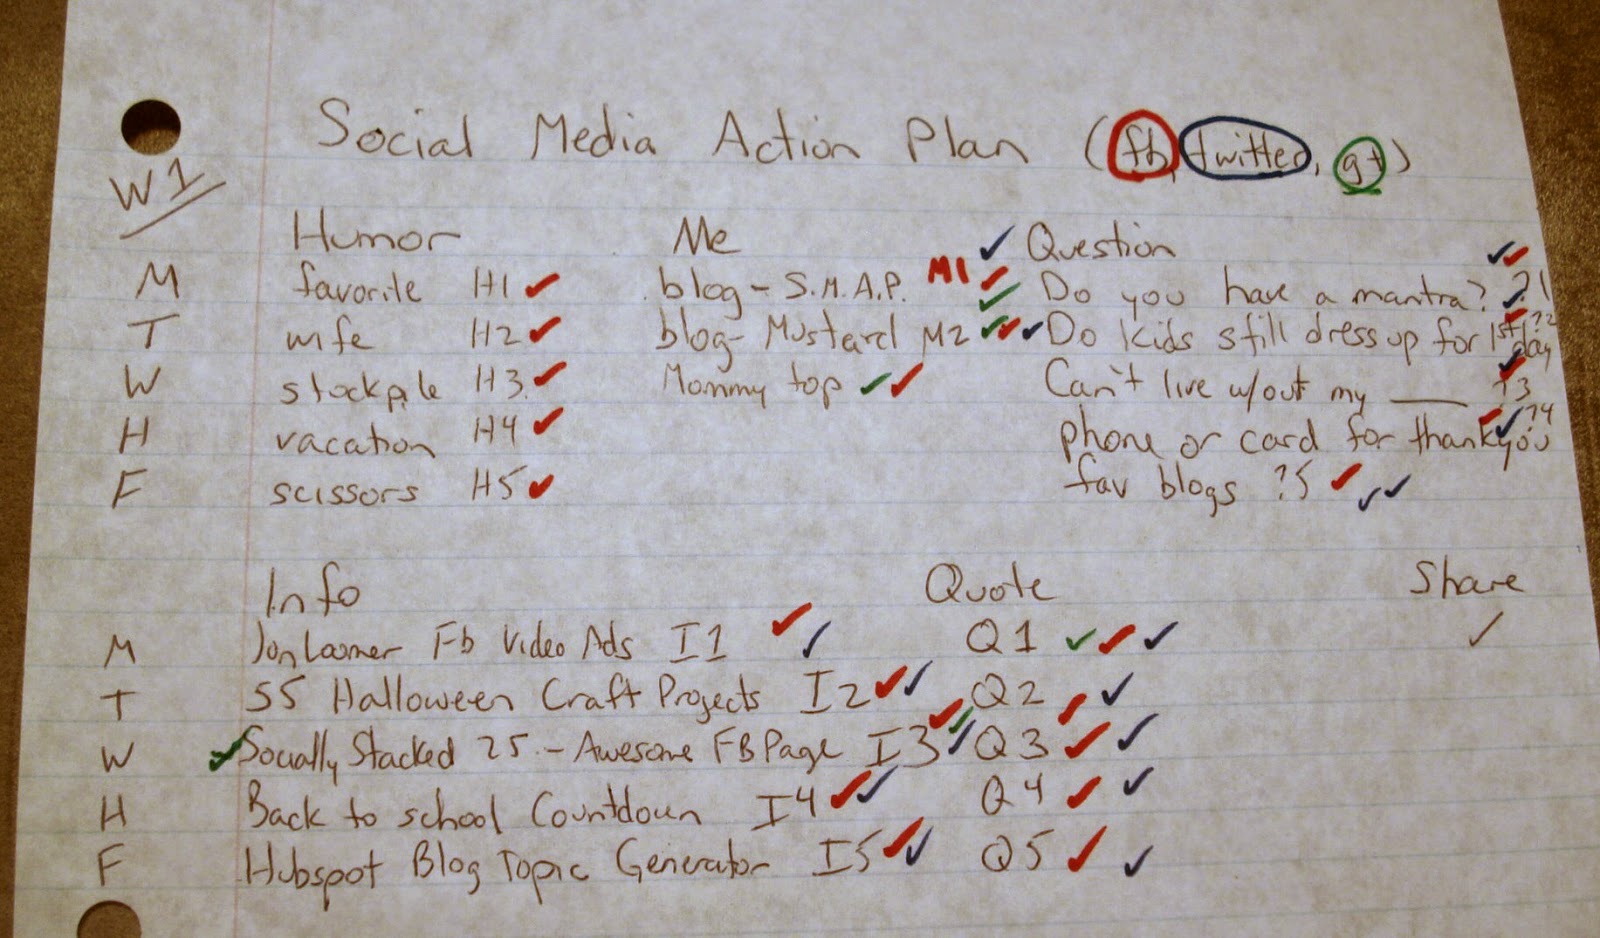 Social Media Action Plan (fb, twitter, g+)
W1
Humor Me Question
M favorite H1 blog - S.M.A.P. M1 Do you have a mantra? ?1
T wife H2 blog- Mustard M2 Do kids still dress up for 1st day ?2
W stockpile H3 Mommy top Can't live w/out my ____ ?3
H vacation H4 phone or card for thank you ?4
F scissors H5 fav blogs ?5
Info Quote Share
M Jon Loomer Fb Video Ads I1 Q1
T 55 Halloween Craft Projects I2 Q2
W Socially Stacked 25 - Awesome FB Page I3 Q3
H Back to school Countdown I4 Q4
F Hubspot Blog Topic Generator I5 Q5